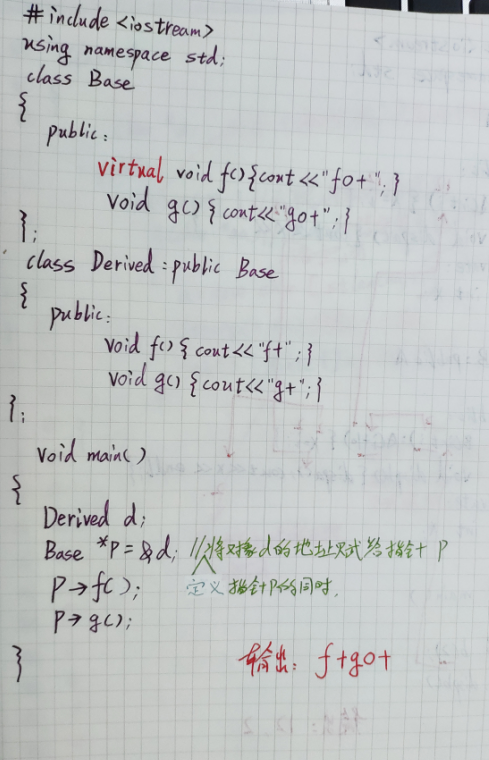 #include <iostream>
using namespace std;
class Base
{
public:
virtual void f(){cout<<"f0+";}
void g(){cout<<"g0+";}
};
class Derived:public Base
{
public:
void f(){cout<<"f+";}
void g(){cout<<"g+";}
};
void main()
{
Derived d;
Base *P=&d; //将对象d的地址赋给指针P
P→f(); 定义指针P的同时.
P→g();
}
输出: f+g0+